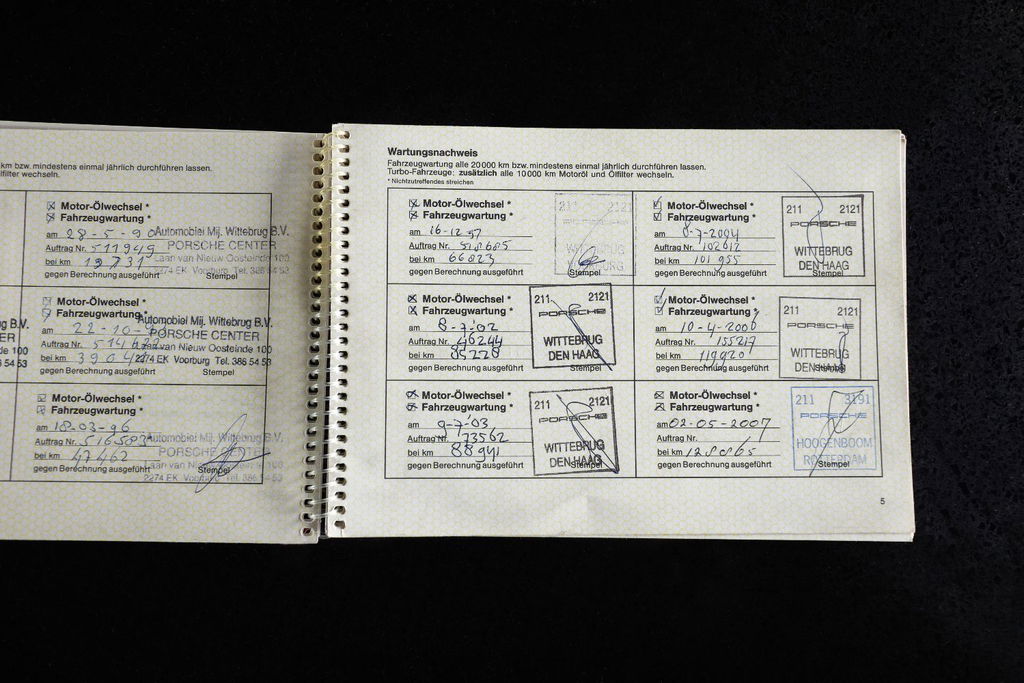 km bzw. mindestens einmal jährlich durchführen lassen.
lfilter wechseln.
Motor-Ölwechsel *
Fahrzeugwartung *
am 28-5-90
Auftrag Nr. 511949
bei km 19731
gegen Berechnung ausgeführt
Stempel
Automobiel Mij. Wittebrug B.V.
PORSCHE CENTER
Laan van Nieuw Oosteinde 100
2274 EK Voorburg Tel. 386 54 53
Motor-Ölwechsel *
Fahrzeugwartung *
am 22-10-
Auftrag Nr.
bei km
gegen Berechnung ausgeführt
Stempel
Automobiel Mij. Wittebrug B.V.
PORSCHE CENTER
Laan van Nieuw Oosteinde 100
2274 EK Voorburg Tel. 386 54 53
Motor-Ölwechsel *
Fahrzeugwartung *
am 18-03-96
Auftrag Nr. 516583
bei km 47462
gegen Berechnung ausgeführt
Stempel
Automobiel Mij. Wittebrug B.V.
PORSCHE CENTER
Laan van Nieuw Oosteinde 100
2274 EK Voorburg Tel. 386 54
rug B.V.
ER
de 100
6 54 53
Wartungsnachweis
Fahrzeugwartung alle 20 000 km bzw. mindestens einmal jährlich durchführen lassen.
Turbo-Fahrzeuge: zusätzlich alle 10 000 km Motoröl und Ölfilter wechseln.
* Nichtzutreffendes streichen
Motor-Ölwechsel *
Fahrzeugwartung *
am 16-12-97
Auftrag Nr. 518685
bei km 66023
gegen Berechnung ausgeführt
Stempel
211 2121
PORSCHE
Motor-Ölwechsel *
Fahrzeugwartung *
am 8-7-2004
Auftrag Nr. 102612
bei km 101955
gegen Berechnung ausgeführt
Stempel
211 2121
PORSCHE
WITTEBRUG
DEN HAAG
Motor-Ölwechsel *
Fahrzeugwartung *
am 8-7-'02
Auftrag Nr. 46244
bei km 85228
gegen Berechnung ausgeführt
Stempel
211 2121
PORSCHE
WITTEBRUG
DEN HAAG
Motor-Ölwechsel *
Fahrzeugwartung *
am 10-4-2006
Auftrag Nr. 155217
bei km 119920
gegen Berechnung ausgeführt
Stempel
211 2121
PORSCHE
WITTEBRUG
DEN HAAG
Motor-Ölwechsel *
Fahrzeugwartung *
am 9-7-'03
Auftrag Nr. 73562
bei km 88941
gegen Berechnung ausgeführt
Stempel
211 2121
PORSCHE
WITTEBRUG
DEN HAAG
Motor-Ölwechsel *
Fahrzeugwartung *
am 02-05-2007
Auftrag Nr.
bei km 128865
gegen Berechnung ausgeführt
Stempel
211 3191
PORSCHE
HOOGENBOOM
ROTTERDAM
5